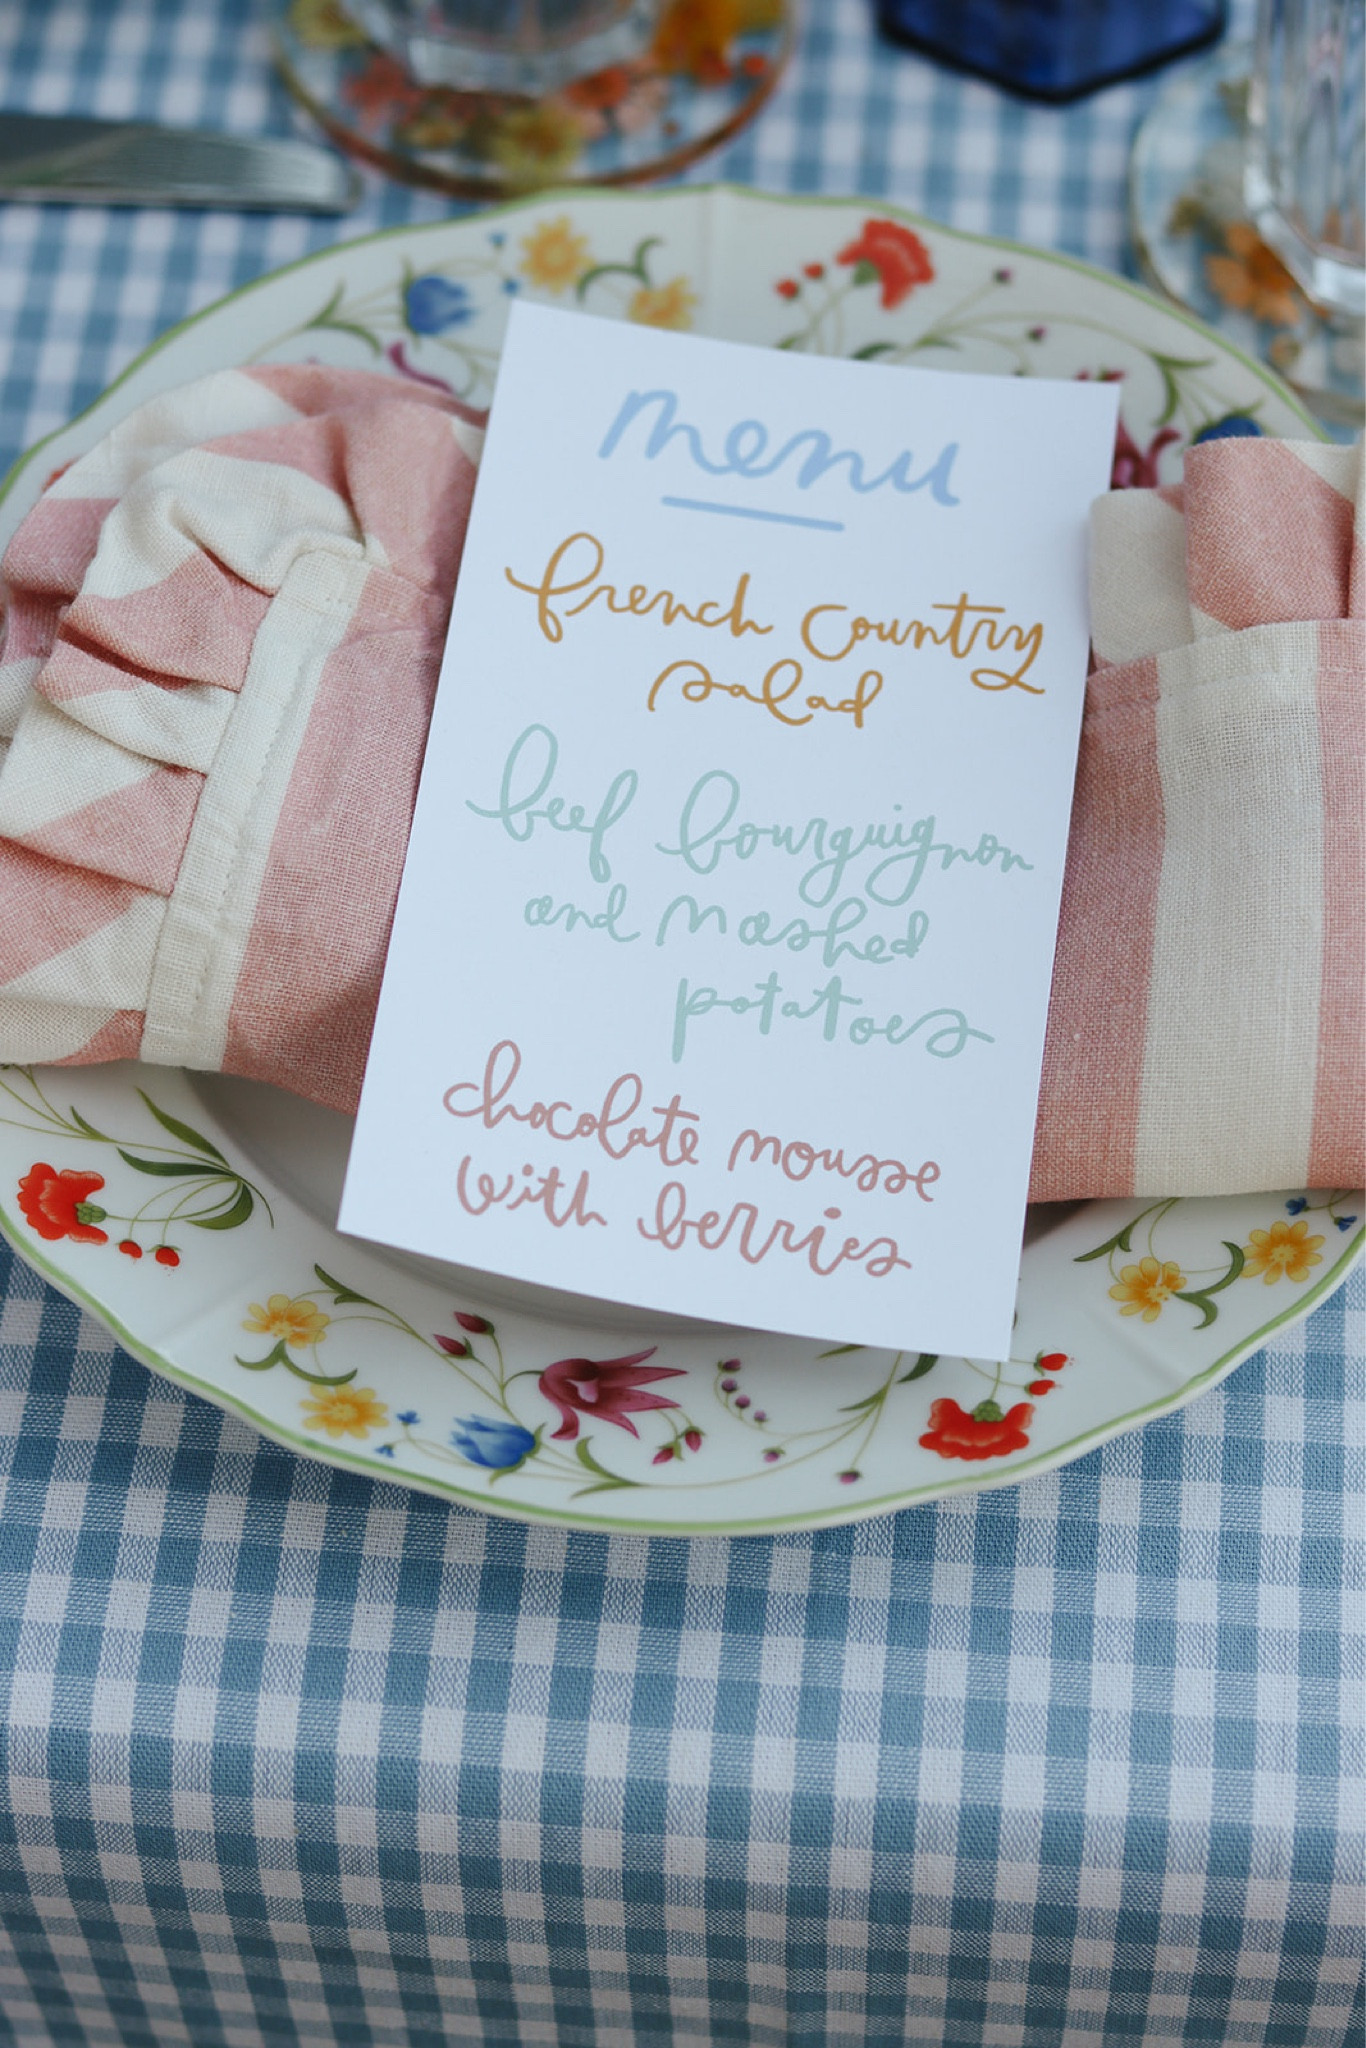 menu
french country
salad
beef bourguignon
and mashed
potatoes
chocolate mousse
with berries